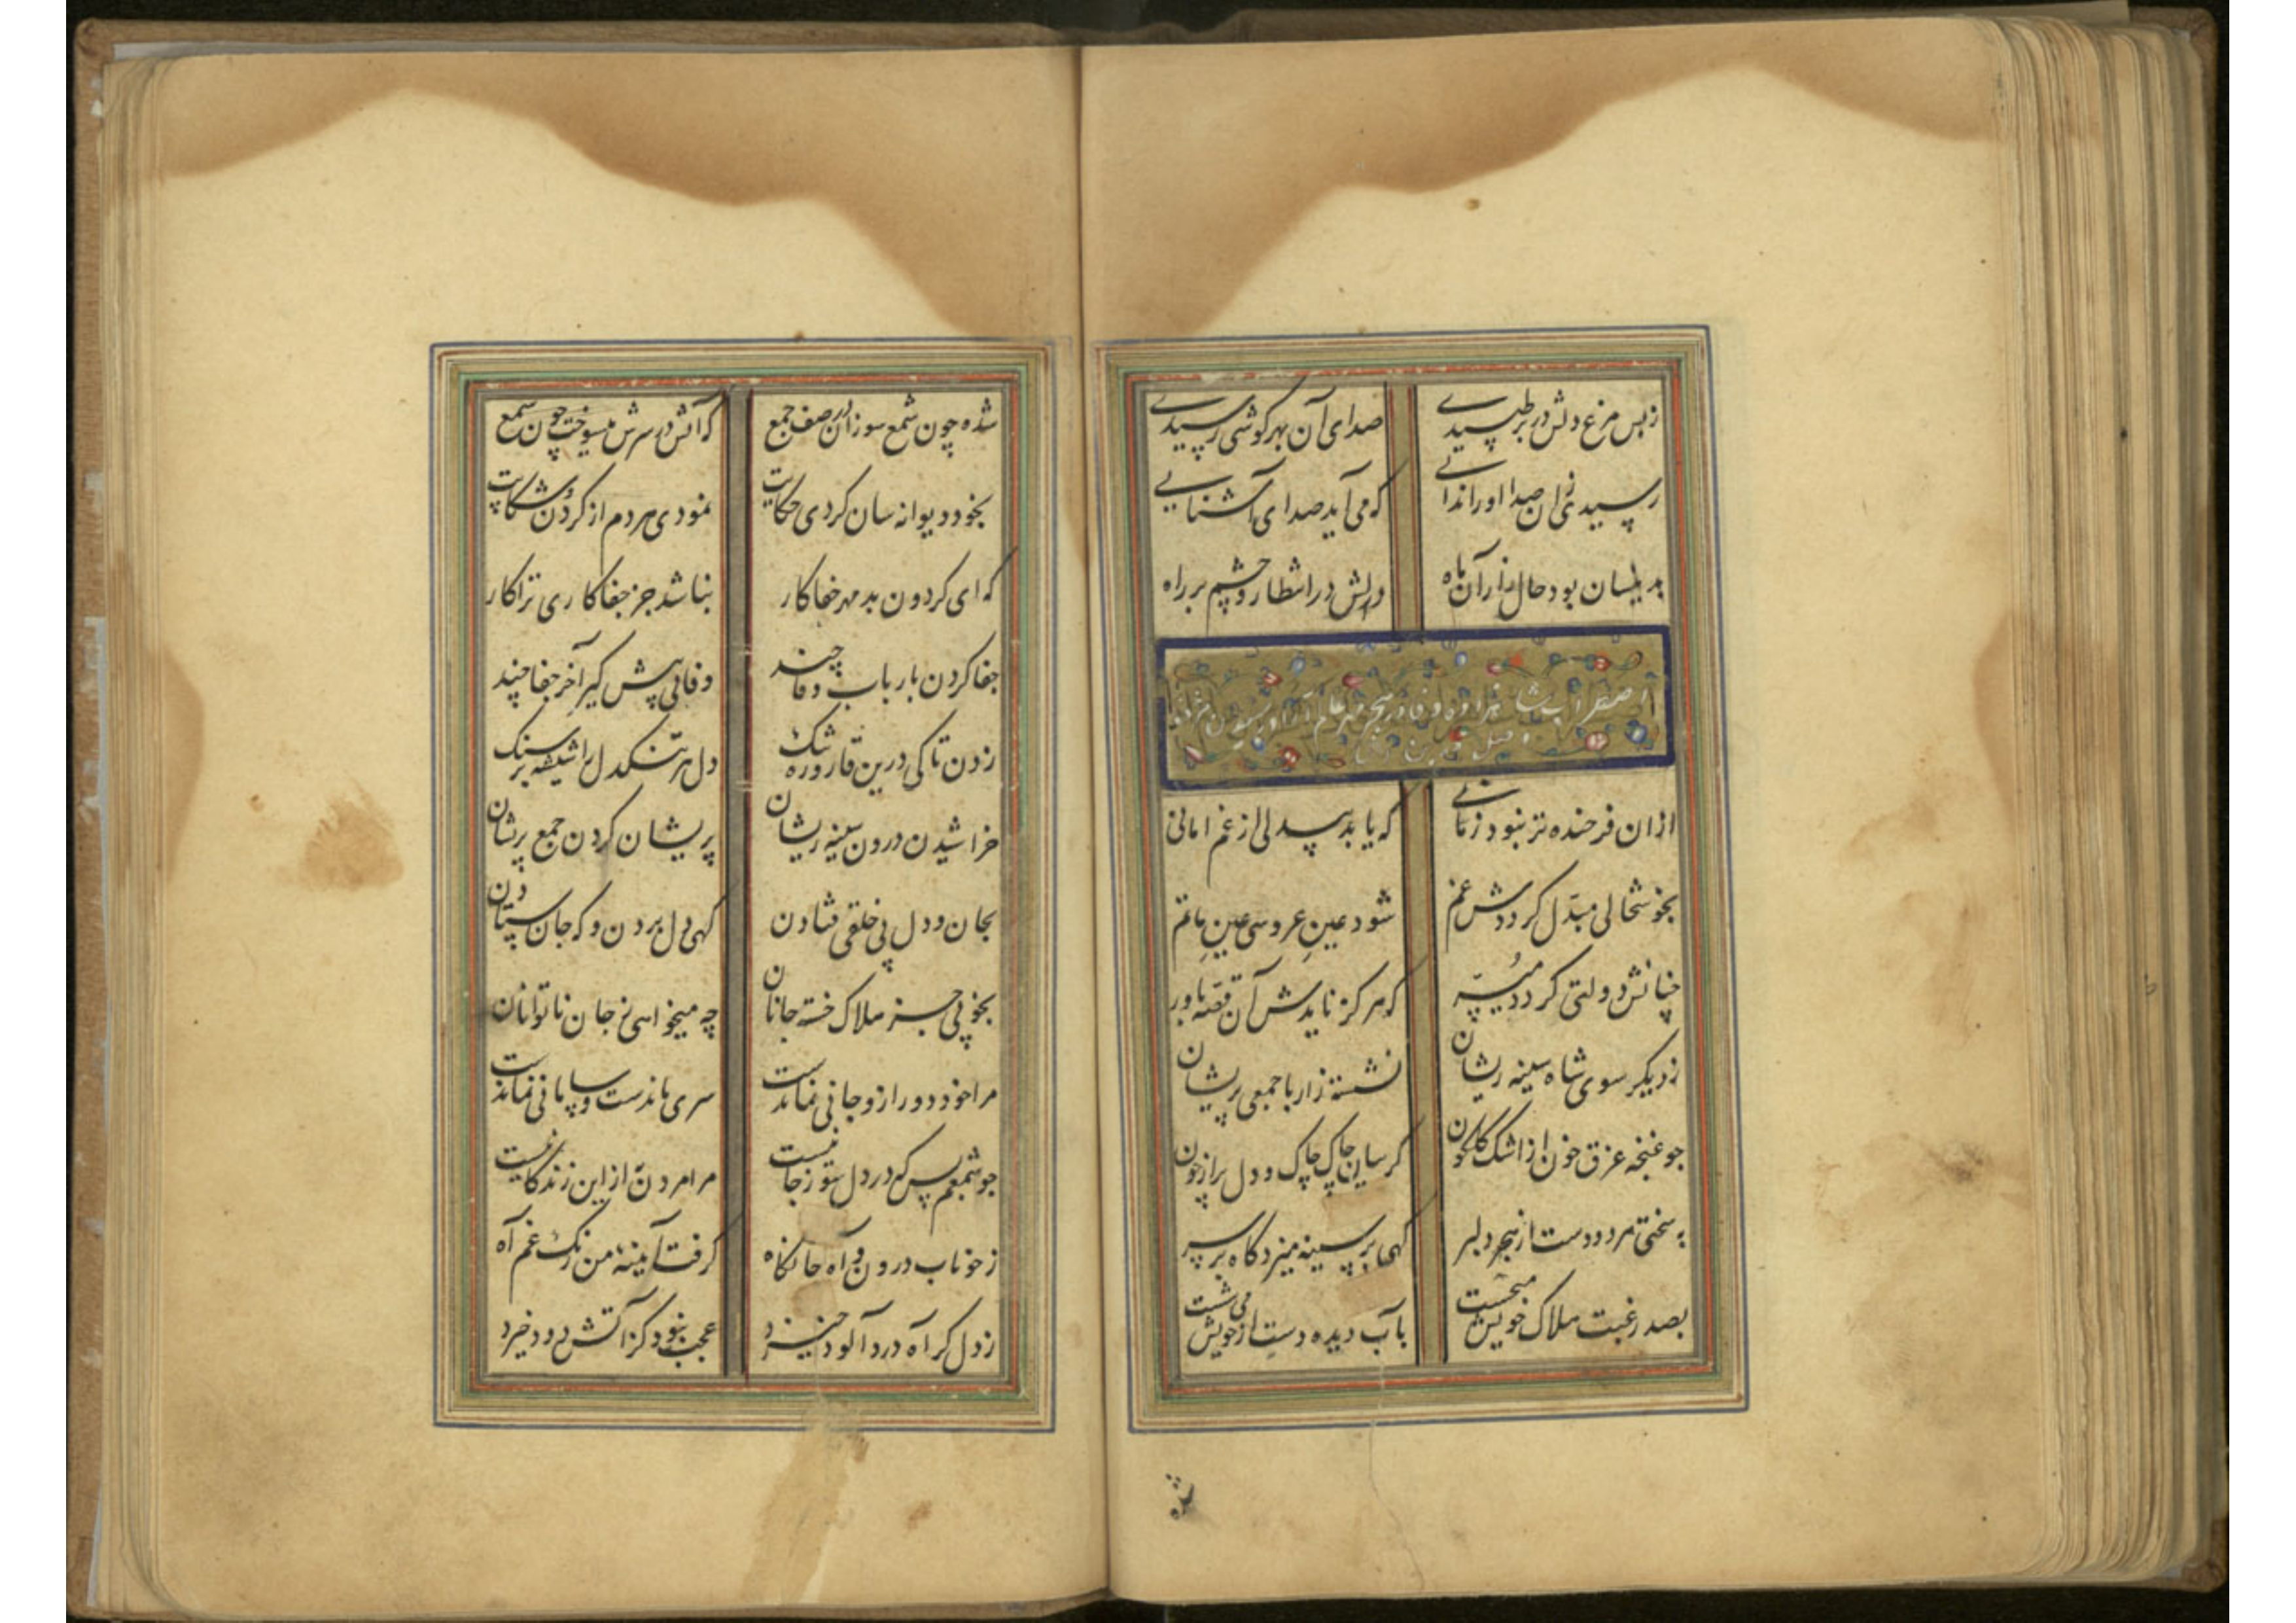 ز بس مرغ دلش در بر طپیدی صدای آن بهر گوشی رسیدی
رسیدی زان صدا او را ندائی که می آید صدای آشنایی
بدینسان بود حال زار آن ماه دلش در انتظار و چشم بر راه
اضطراب شاهزاده وفا در هجر مهر عالم آرا و رسیدن مرغ
ازان فرخنده تر نبود زمانی که یابد بیدلی از غم امانی
بخوشحالی مبدّل گرددش غم شود عینِ عروسی عینِ ماتم
چنانش دولتی گردد میُسّر که هرگز نایدش آن قصّه باور
ز دیگر سوی شاه سینه ریشان نشسته زار با جمعی پریشان
چو غنچه غرق خون از اشک گلگون گریبان چاک چاک و دل پر از خون
به سختی مرد و دست از هجر دلبر گهی بر سینه میزد گاه بر سر
بصد رغبت هلاک خویش میجست بآب دیده دست از خویش می شست
شده
شده چون شمع سوزان در صف جمع که آتش در سرش میسوخت چون شمع
بخود دیوانه سان کردی حکایت نمودی هر دم از گردُن شکایت
که ای گردون بد مهر جفاکار نباشد جز جفا کاری ترا کار
جفا کردن بارباب وفا چند وفائی پیش گیر آخر جفا چند
زدن تا کی درین قاروره سنگ دل هر تنکدل را شیشه بر سنگ
خراشیدن درون سینه ریشان پریشان کردن جمع پریشان
بجان و دل پی خلقی فتادن گهی دل بردن و گه جان ستادن
بخوبی جز هلاک خسته جانان چه میخواهی ز جان ناتوانان
مرا خود دور ازو جانی نماندست سری ماندست و سامانی نماندست
چو شمعم بس که در دل سوز جانیست مرا مردن به از این زندگانیست
ز خوناب درون و آه جانکاه گرفت آیینهٔ من زنگ غم آه
ز دل گر آه درد آلود خیزد عجب نبود کز آتش دود خیزد